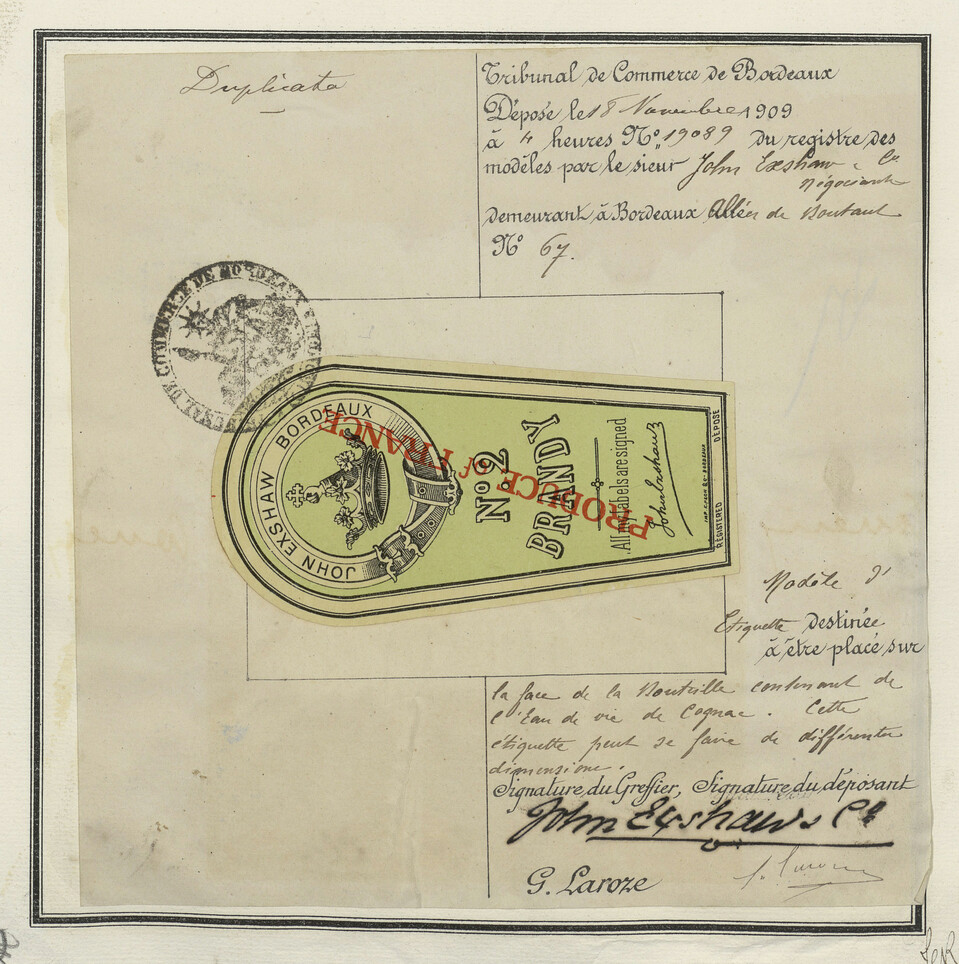 Duplicata
Tribunal de Commerce de Bordeaux
Déposé le 18 Novembre 1909
à 4 heures N° 19089 du registre des
modèles par le sieur John Exshaw & Co
négociants
demeurant à Bordeaux Allées de Boutaut
N° 67.
TRIBUNAL DE COMMERCE DE BORDEAUX
JOHN EXSHAW BORDEAUX
No. 2
BRANDY
All my labels are signed
John Exshaw
REGISTERED DÉPOSÉ
PRODUCE of FRANCE
Modèle d'
Etiquette destinée
à être placé sur
la face de la Bouteille contenant de
l'Eau de vie de Cognac. Cette
étiquette peut se faire de différentes
dimensions.
Signature du Greffier, Signature du déposant
John Exshaw & Co
G. Laroze